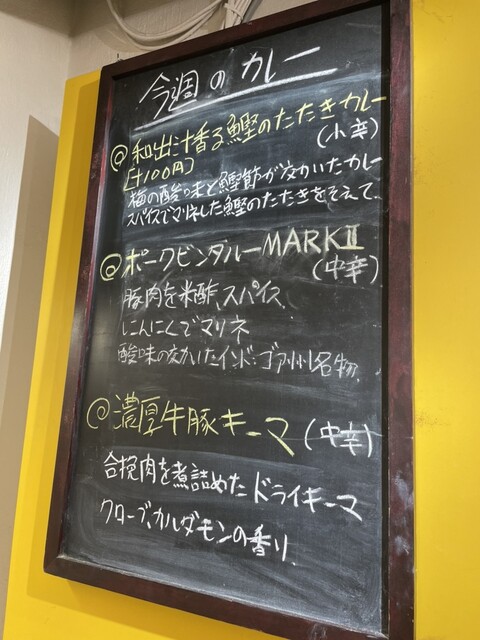 今週のカレー
@和出汁香る鰹のたたきカレー
[+100円] (小辛)
梅の酸味と鰹節が効いたカレー
スパイスでマリネした鰹のたたきをそえて
@ポークビンダルーMARKⅡ
(中辛)
豚肉を米酢、スパイス、
にんにくでマリネ
酸味の効いたインド・ゴア州名物。
@濃厚牛豚キーマ(中辛)
合挽肉を煮詰めたドライキーマ
クローブ、カルダモンの香り。